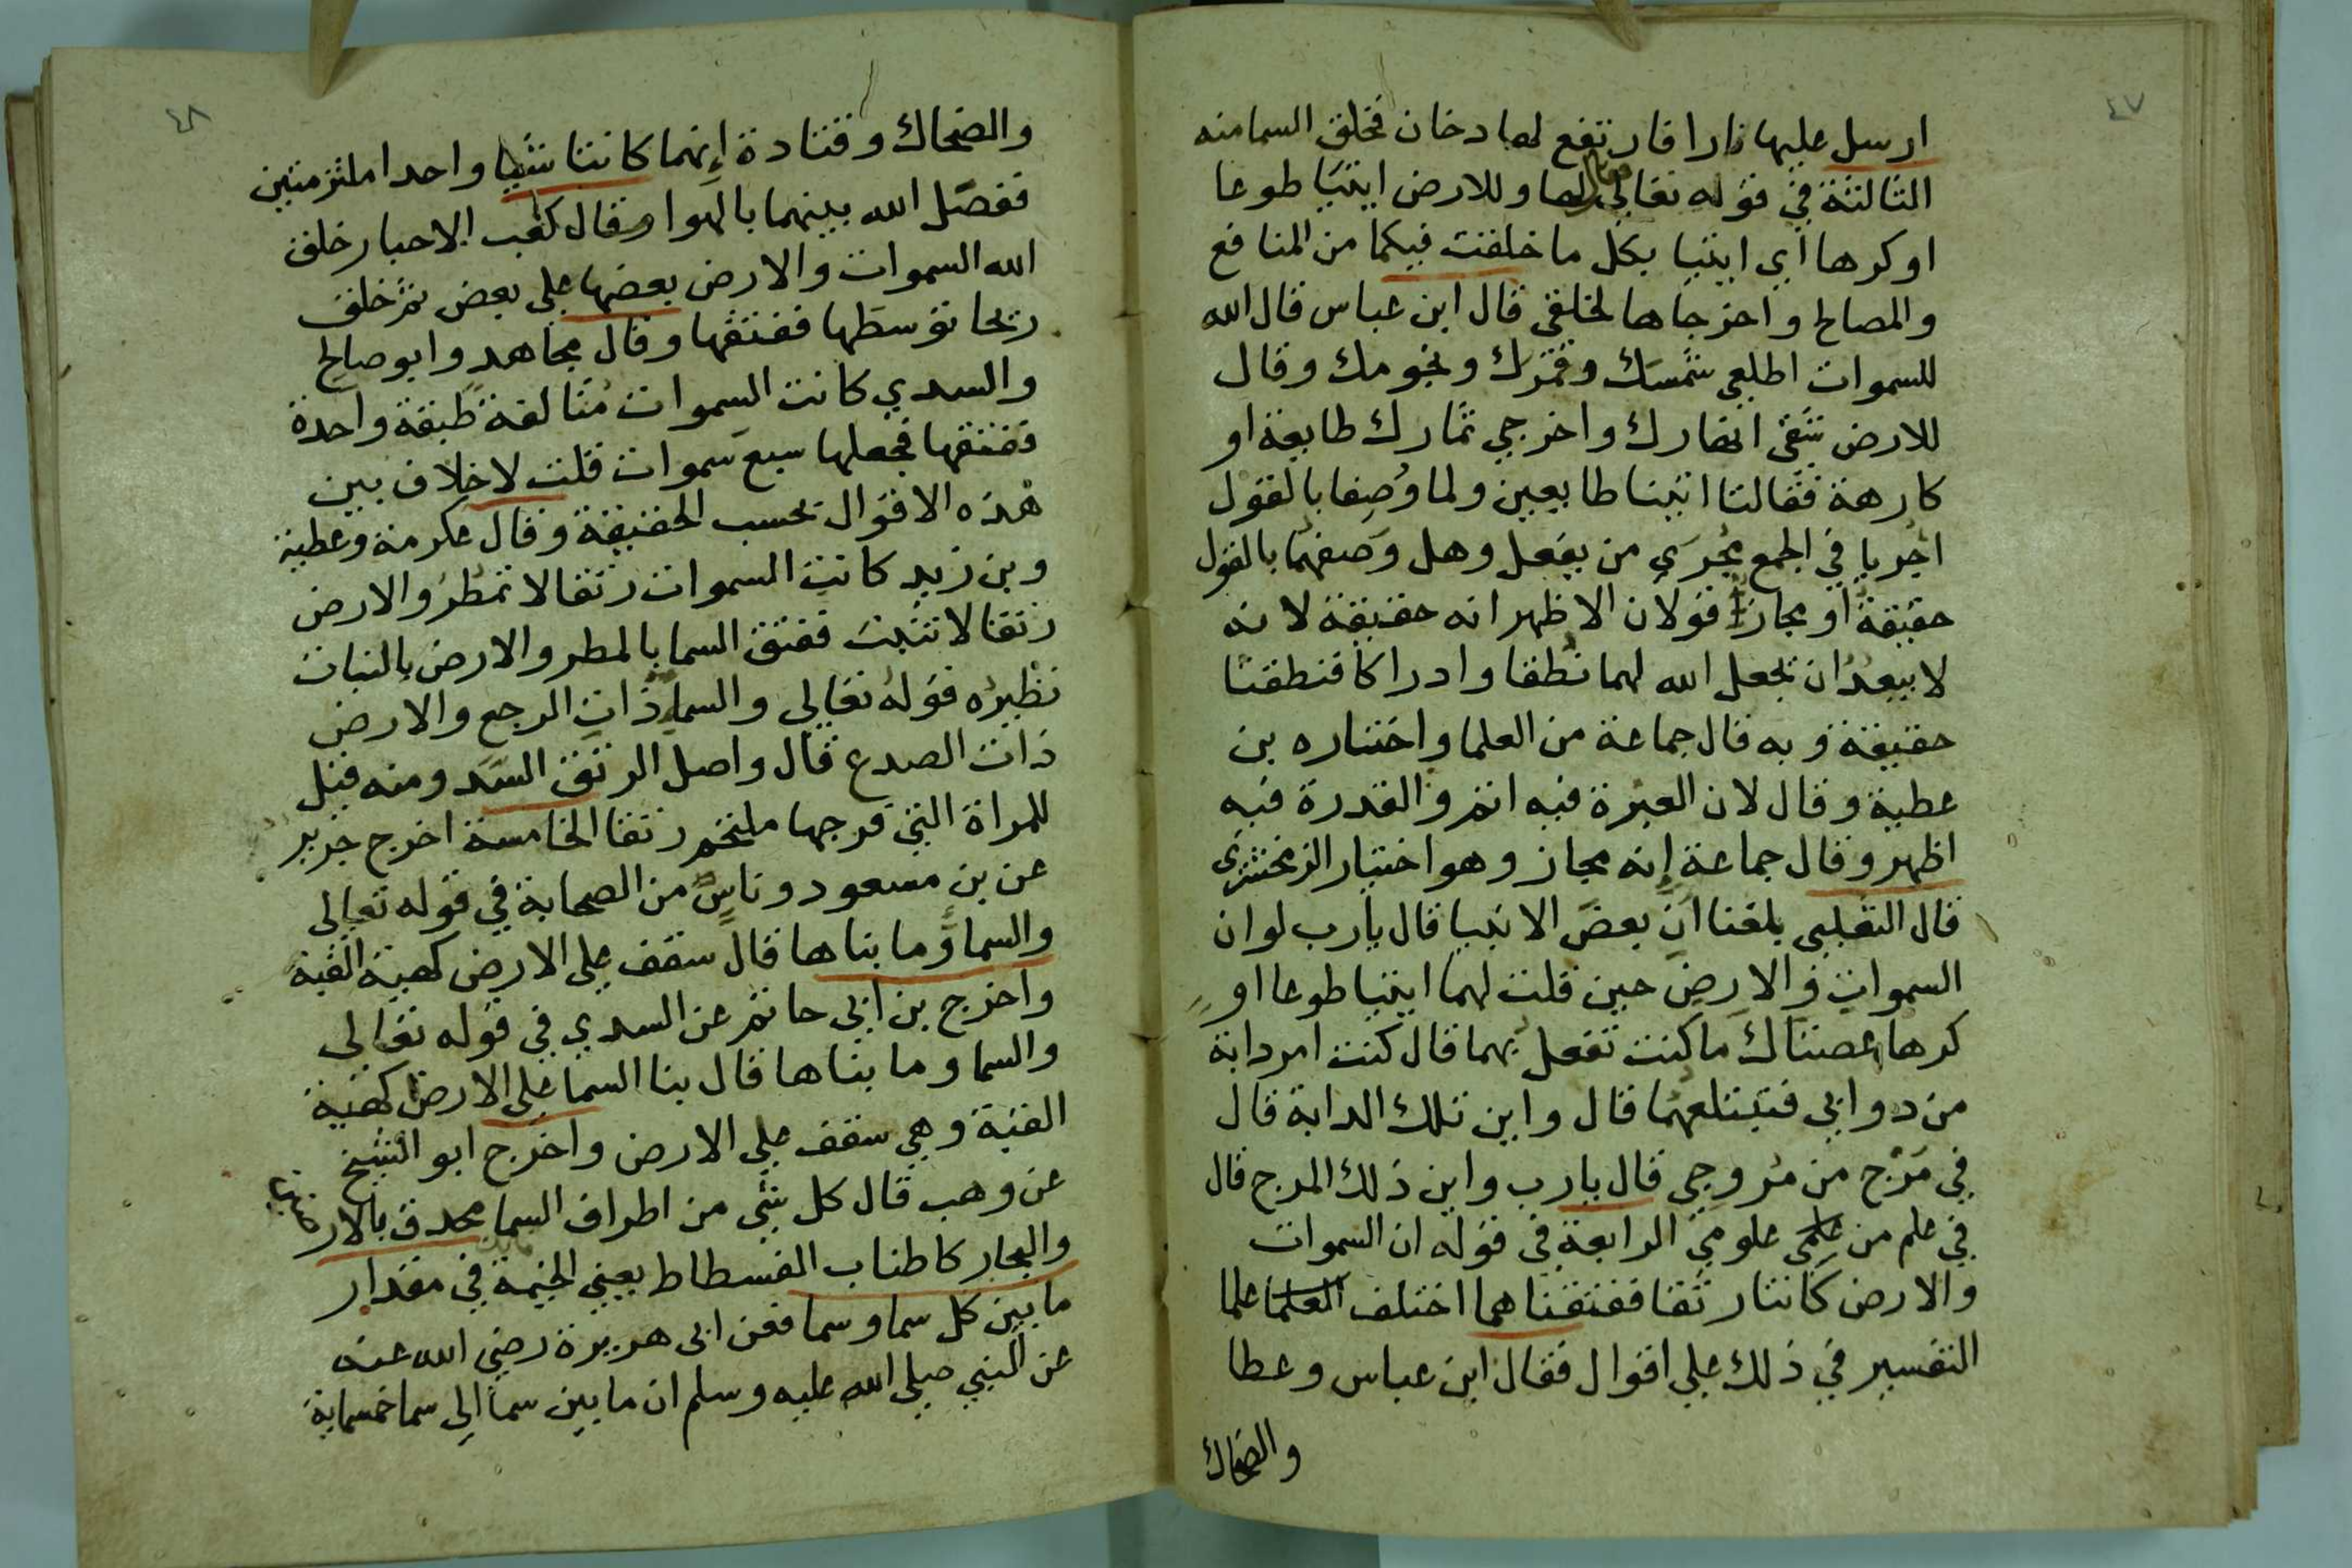 ٤٧
ارسل عليها نارا فارتفع لها دخان فخلق السما منه
الثالثة في قوله تعالي فقال لها وللارض ايتيا طوعا
او كرها اي ايتيا بكل ما خلقت فيكما من المنافع
والمصالح واخرجاها لخلقي قال ابن عباس قال الله
للسموات اطلعي شمسك وقمرك ونجومك وقال
للارض شقي انهارك واخرجي ثمارك طايعة او
كارهة فقالتا اتينا طايعين ولما وُصِفا بالقول
اجريا في الجمع مجرَي من يفعل وهل وَصفهما بالقول
حقيقة او مجازا قولان الاظهر انه حقيقة لانه
لا يبعد ان يجعل الله لهما نطقا وادراكا فنطقتا
حقيقة وبه قال جماعة من العلما واختاره بن
عطية وقال لان العبرة فيه اتم والقدرة فيه
اظهر وقال جماعة إنه مجاز وهو اختيار الزمخشري
قال الثعلبي بلغنا ان بعض الانبيا قال يارب لو ان
السموات والارض حين قلت لهما ايتيا طوعا او
كرها عصتاك ما كنت تفعل بهما قال كنت امر دابة
من دوابي فتبتلعهما قال واين تلك الدابة قال
في مَرْج من مُروجي قال يارب واين ذلك المرج قال
في علم من علمي علومي الرابعة في قوله ان السموات
والارض كانتا رتقا ففتقناهما اختلف العلما علما
التفسير في ذلك علي اقوال فقال ابن عباس وعطا
والضحاك
٤٨
والضحاك وقتادة إنهما كانتا شيا واحدا ملتزمتين
ففصّل الله بينهما بالهوا وقال كعب الاحبار خلق
الله السموات والارض بعضها علي بعض ثم خلق
ريحا توسطها ففتقها وقال مجاهد وابو صالح
والسدي كانت السموات مُتالفة طبقة واحدة
ففتقها فجعلها سبع سموات قلت لا خلاف بين
هذه الاقوال بحسب الحقيقة وقال عكرمة وعطية
وبن زيد كانت السموات رتقا لا تمطر والارض
رتقا لا تنبت ففتق السما بالمطر والارض بالنبات
نظيره قوله تعالي والسما ذات الرجع والارض
ذات الصدع قال واصل الرتق السَد ومنه قيل
للمراة التي فرجها ملتحم رتقا الخامسة اخرج جرير
عن بن مسعود وناسٌ من الصحابة في قوله تعالي
والسما وما بناها قال سقف علي الارض كهية القبة
واخرج بن ابي حاتم عن السدي في قوله تعالي
والسما وما بناها قال بنا السما علي الارض كهية
القبة وهي سقف علي الارض واخرج ابو الشيخ
عن وهب قال كل شي من اطراف السما محدق بالار
والبحار كاطناب الفسطاط يعني الخيمة في مقدار
ما بين كل سما وسما فعن ابي هريرة رضي الله عنه
عن النبي صلي الله عليه وسلم ان ما بين سما الي سما خمسماية